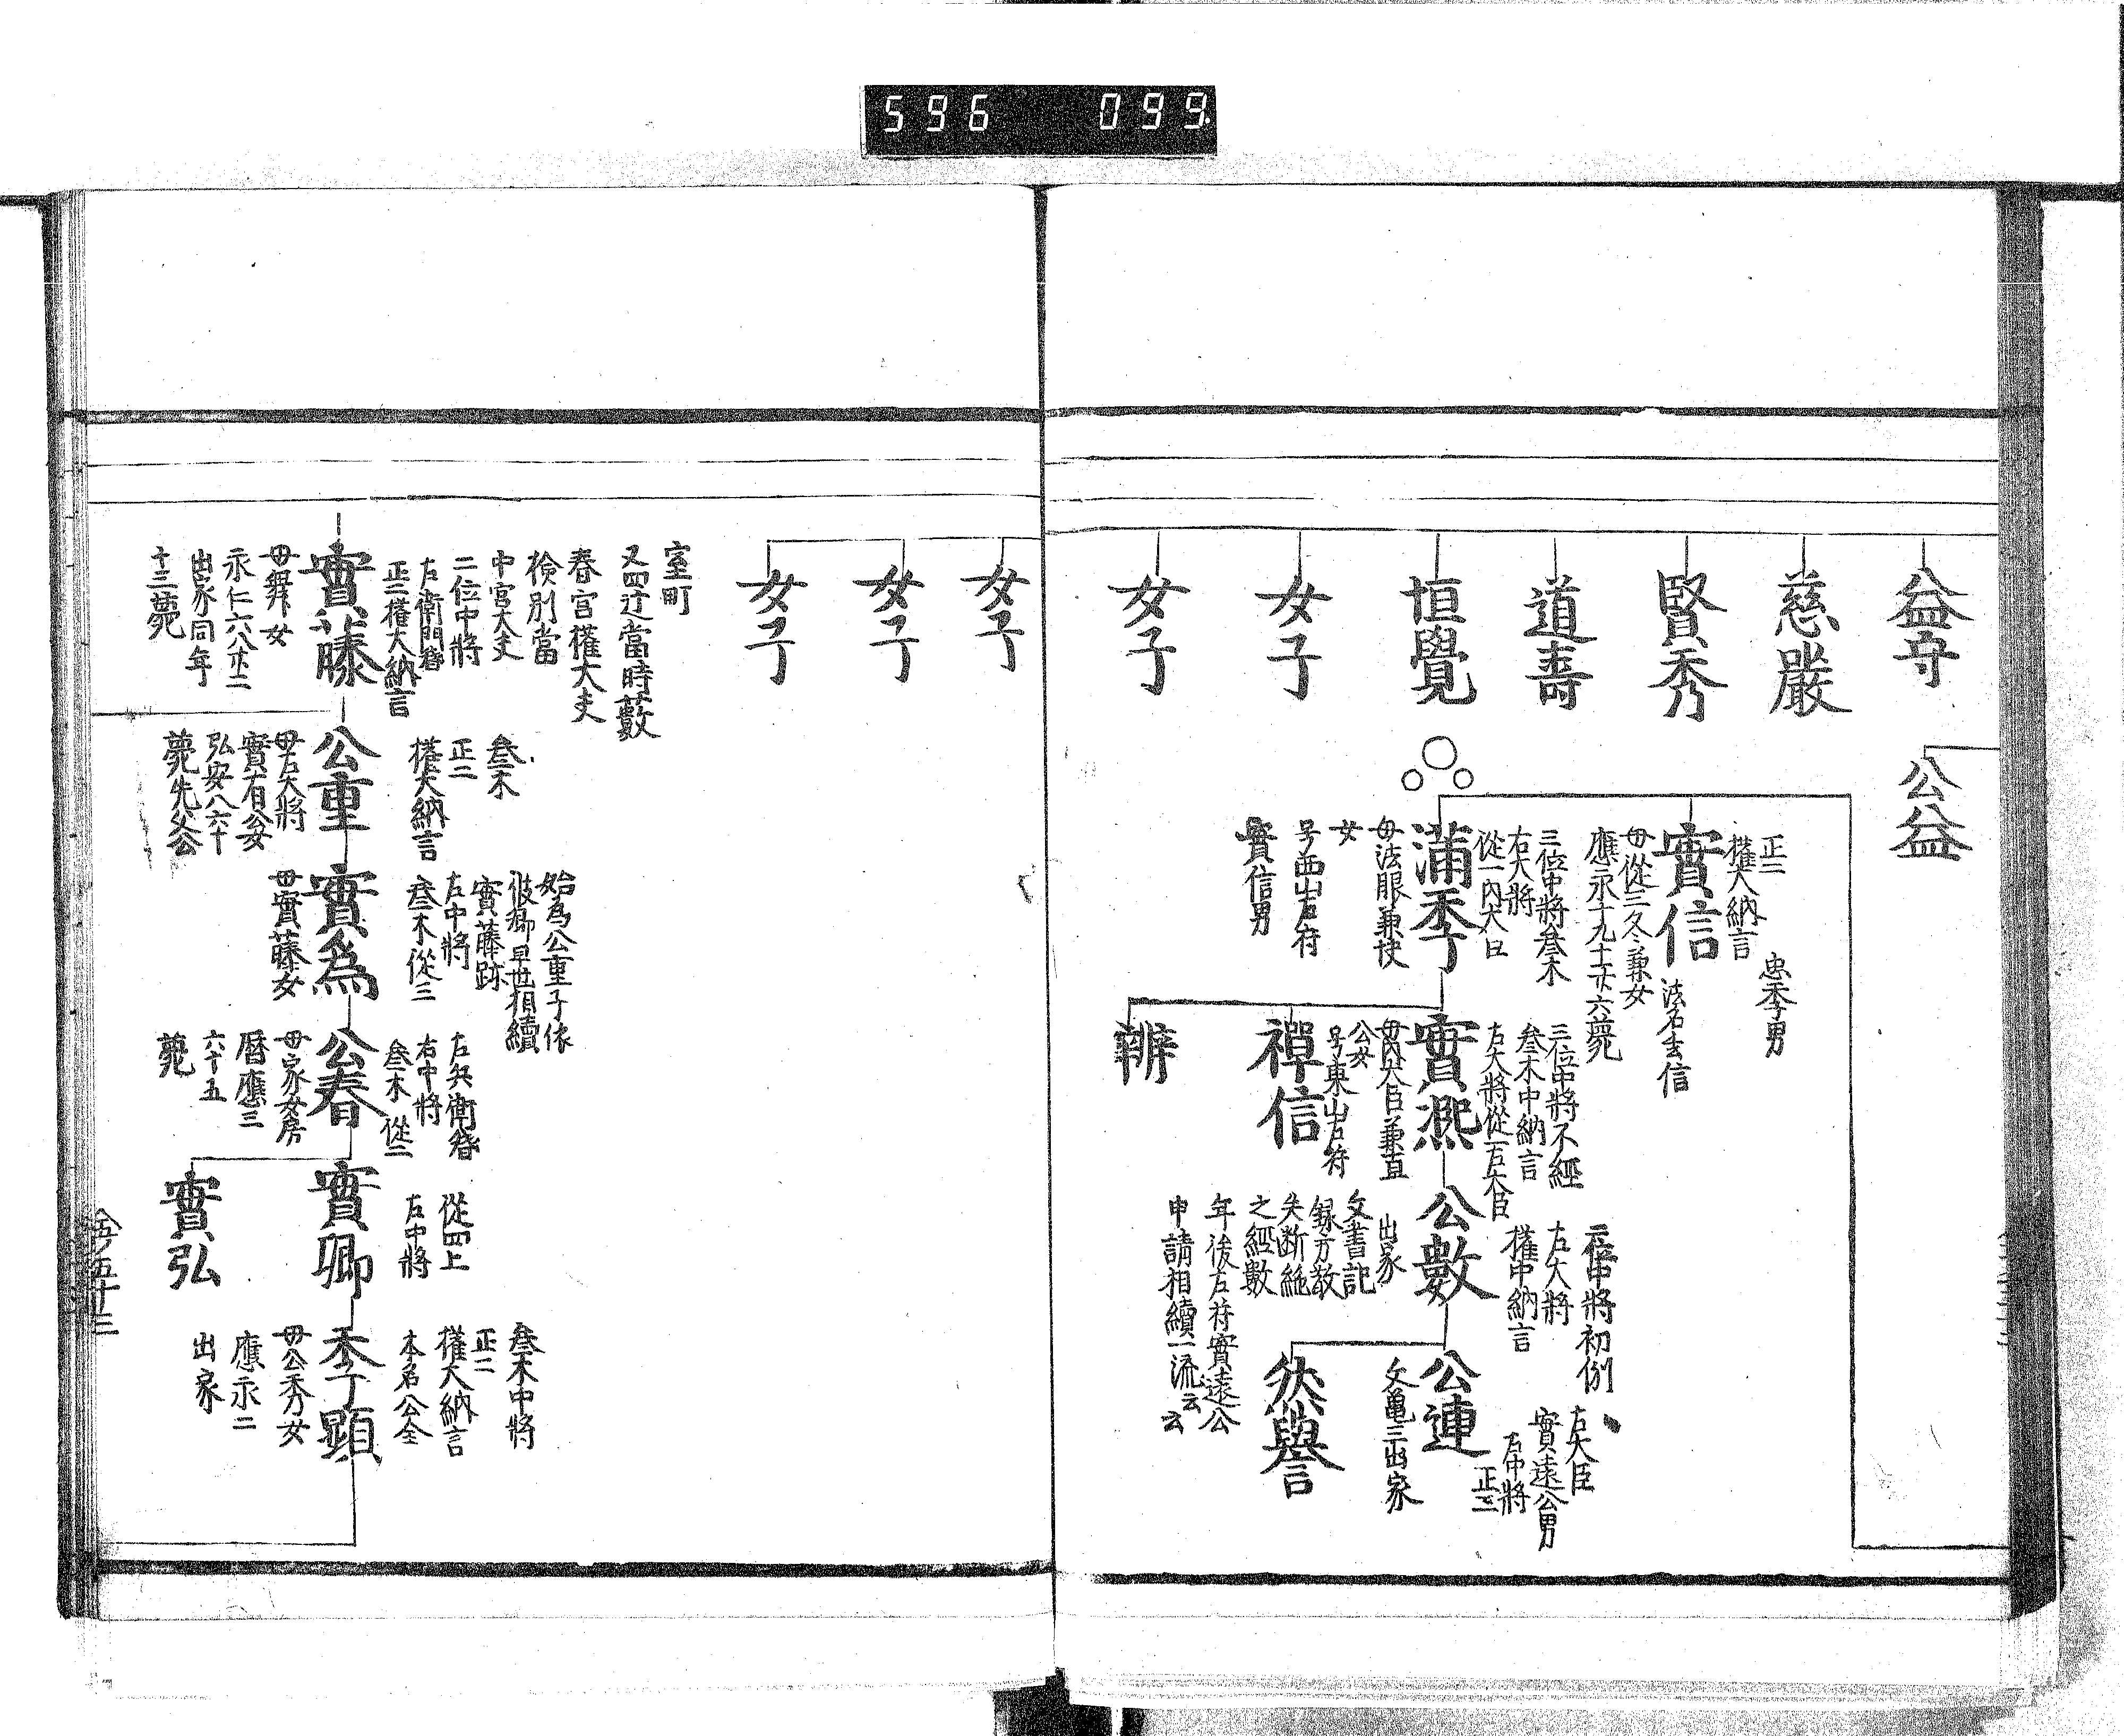 596 099
公益
公守
慈嚴
賢秀
道壽
垣覺
女子
女子
忠季男
正二
權大納言
實信
法名圭信
母從三久冬兼女
應永十九十廿六薨
三位中將叄木
右大將
從一内大臣
滿季
母法眼兼快
女
号西山左府
實信男
三位中將不經
叄木中納言
右大將從一右大臣
實熈
母内大臣兼宣
公女
号東山左府
禪信
辨
二位中將初例
右大將
權中納言
公數
出家
文書記
録方散
失断絶
之經數
年後左府實遠公
申請相續一流云云
左大臣
實遠公男
右中將
正三
公連
文亀三出家
然譽
女子
女子
女子
室町
又四辻當時藪
春宮權大夫
檢別當
中宮大夫
二位中將
左衛門督
正二權大納言
實藤
母舞女
永仁六八廿二
出家同年
十三薨
叄木
正二
權大納言
公重
母右大將
實有公女
弘安八六十
薨先父公
始為公重子依
彼卿早世相續
實藤跡
左中將
叄木從三
實爲
母實藤女
左兵衛督
右中將
叄木 從二
公春
母家女房
曆應三
六十五
薨
從四上
左中將
實卿
實弘
叄木中將
正二
權大納言
本名公全
季顯
母公秀女
應永二
出家
公五ノ五十三